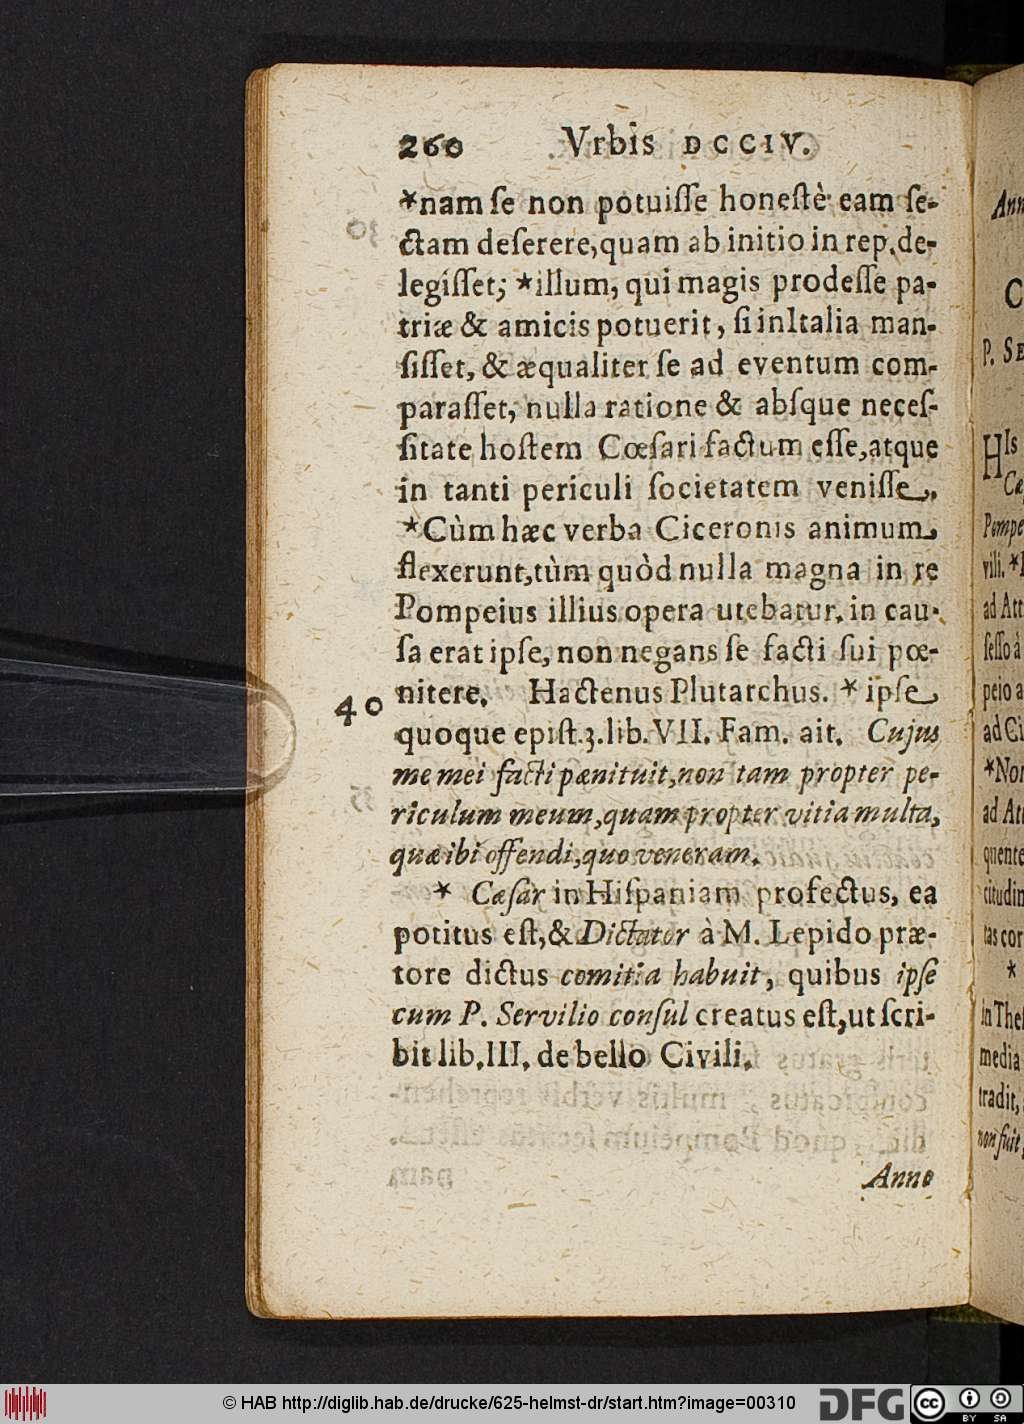 260 Vrbis DCCIV.
*nam ſe non potuiſſe honeſtè eam ſe-
ctam deſerere, quam ab initio in rep. de-
legiſſet; *illum, qui magis prodeſſe pa-
triæ & amicis potuerit, ſi in Italia man-
ſiſſet, & æqualiter ſe ad eventum com-
paraſſet, nulla ratione & abſque neceſ-
ſitate hoſtem Cœſari factum eſſe, atque
in tanti periculi ſocietatem veniſſe.
*Cùm hæc verba Ciceronis animum
flexerunt, tùm quòd nulla magna in re
Pompeius illius opera utebatur. in cau-
ſa erat ipſe, non negans ſe facti ſui pœ-
nitere. Hactenus Plutarchus. * ipſe
40
quoque epiſt. 3. lib. VII. Fam. ait. Cujus
me mei facti pænituit, non tam propter pe-
riculum meum, quam propter vitia multa,
quæ ibi offendi, quo veneram.
* Cæſar in Hiſpaniam profectus, ea
potitus eſt, & Dictator à M. Lepido præ-
tore dictus comitia habuit, quibus ipſe
cum P. Servilio conſul creatus eſt, ut ſcri-
bit lib. III. de bello Civili.
Anno
Ann
C
P. SE
HIs
Cæ
Pompe
vili. *
ad Att
ſeſſo à
peio a
ad Ci
*Non
ad Att
quente
citudin
tas cor
*
in Theſ
media
tradit,
non fuit,
© HAB http://diglib.hab.de/drucke/625-helmst-dr/start.htm?image=00310 DFG cc BY SA